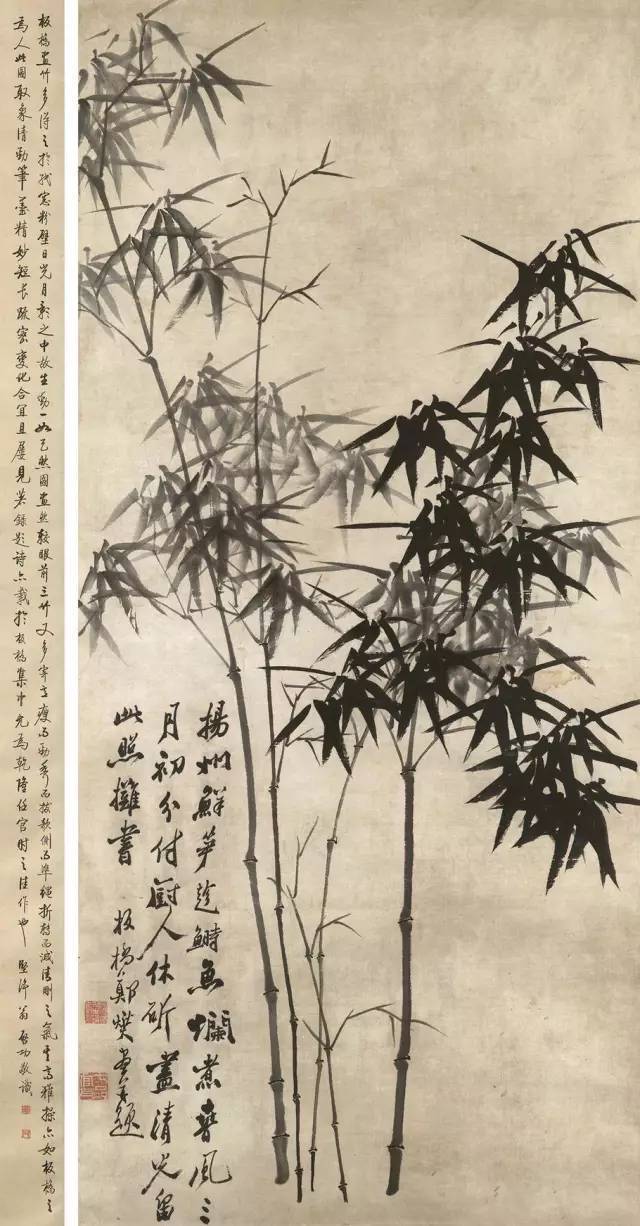 揚州鮮笋趁鰣魚爛煮春風三
月初分付厨人休斫盡清光留
此照攤書
板橋鄭燮畫并題
板橋畫竹多得之於紙窗粉壁日光月影之中故生動一如眼前三竹又多瘦而勁秀而拔欹側而準繩折轉而之氣其高雅操亦如板橋之
為人此圖取象清勁筆墨精妙短長疏密變化合宜且屢見著錄題詩亦載於板橋集中尤為乾隆任官時之佳作也 堅淨翁啟功敬識